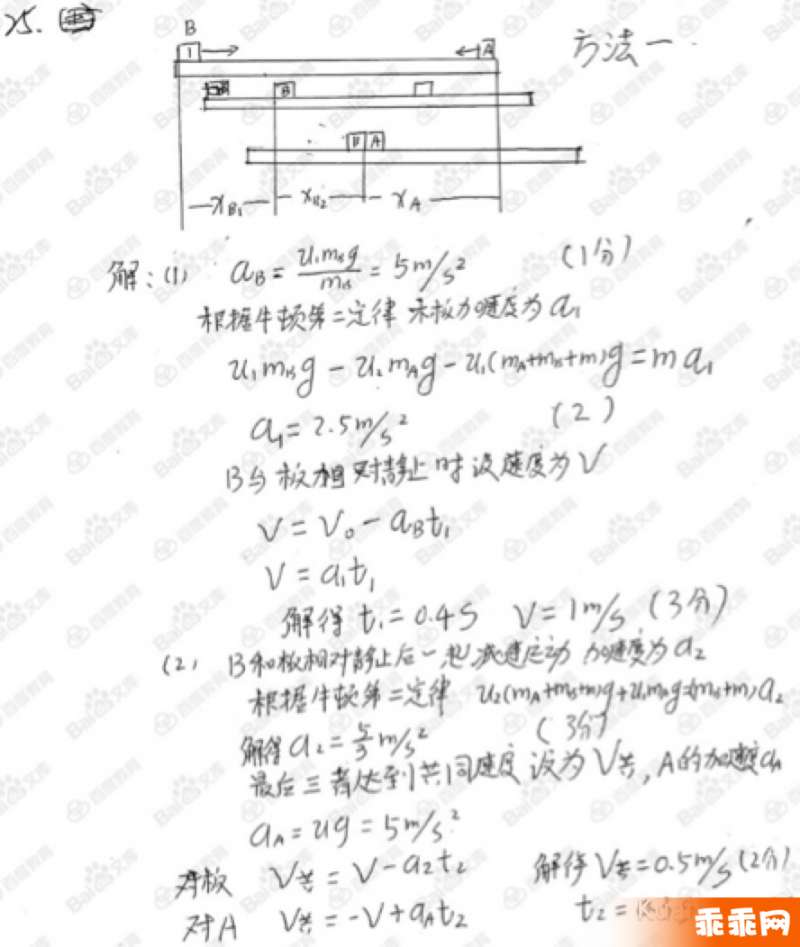 25.
方法一
B
1
A
B
B A
xB₁ xB₂ xA
解:(1) aB = u₁mBg/mB = 5m/s² (1分)
根据牛顿第二定律 木板加速度为a₁
u₁mBg - u₂mAg - u₁(mA+mB+m)g = ma₁
a₁ = 2.5m/s² (2)
B与板相对静止时设速度为V
V = V₀ - aBt₁
V = a₁t₁
解得 t₁=0.4S V=1m/s (3分)
(2) B和板相对静止后一起减速运动 加速度为a₂
根据牛顿第二定律 u₂(mA+mB+m)g+u₁mAg=(mB+m)a₂
解得 a₂ = 5/3 m/s² (3分)
最后三者达到共同速度 设为V共, A的加速度aA
aA = ug = 5m/s²
对板 V共 = V - a₂t₂ 解得 V共=0.5m/s (2分)
对A V共 = -V + aAt₂ t₂ =
乖乖网